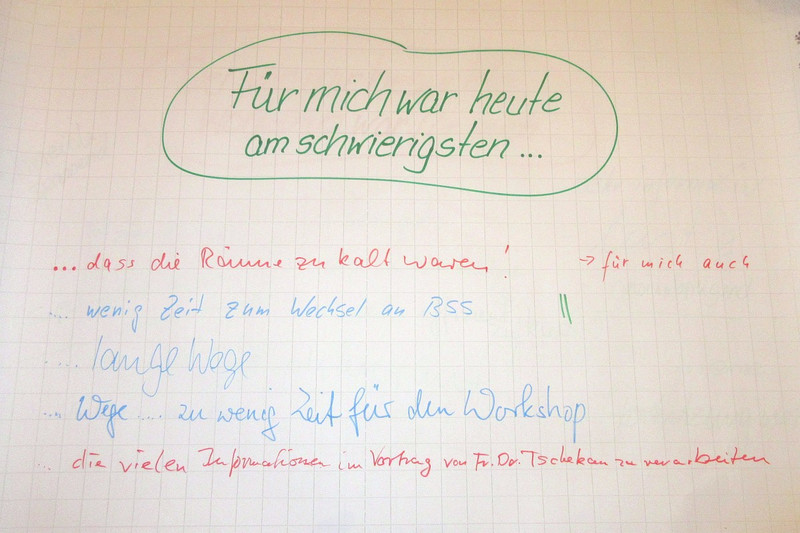 Für mich war heute
am schwierigsten ...
... dass die Räume zu kalt waren! → für mich auch
.... wenig Zeit zum Wechsel an BSS ||
..... lange Wege
.... Wege .... zu wenig Zeit für den Workshop
... die vielen Informationen im Vortrag von Fr. Dr. Tschekan zu verarbeiten